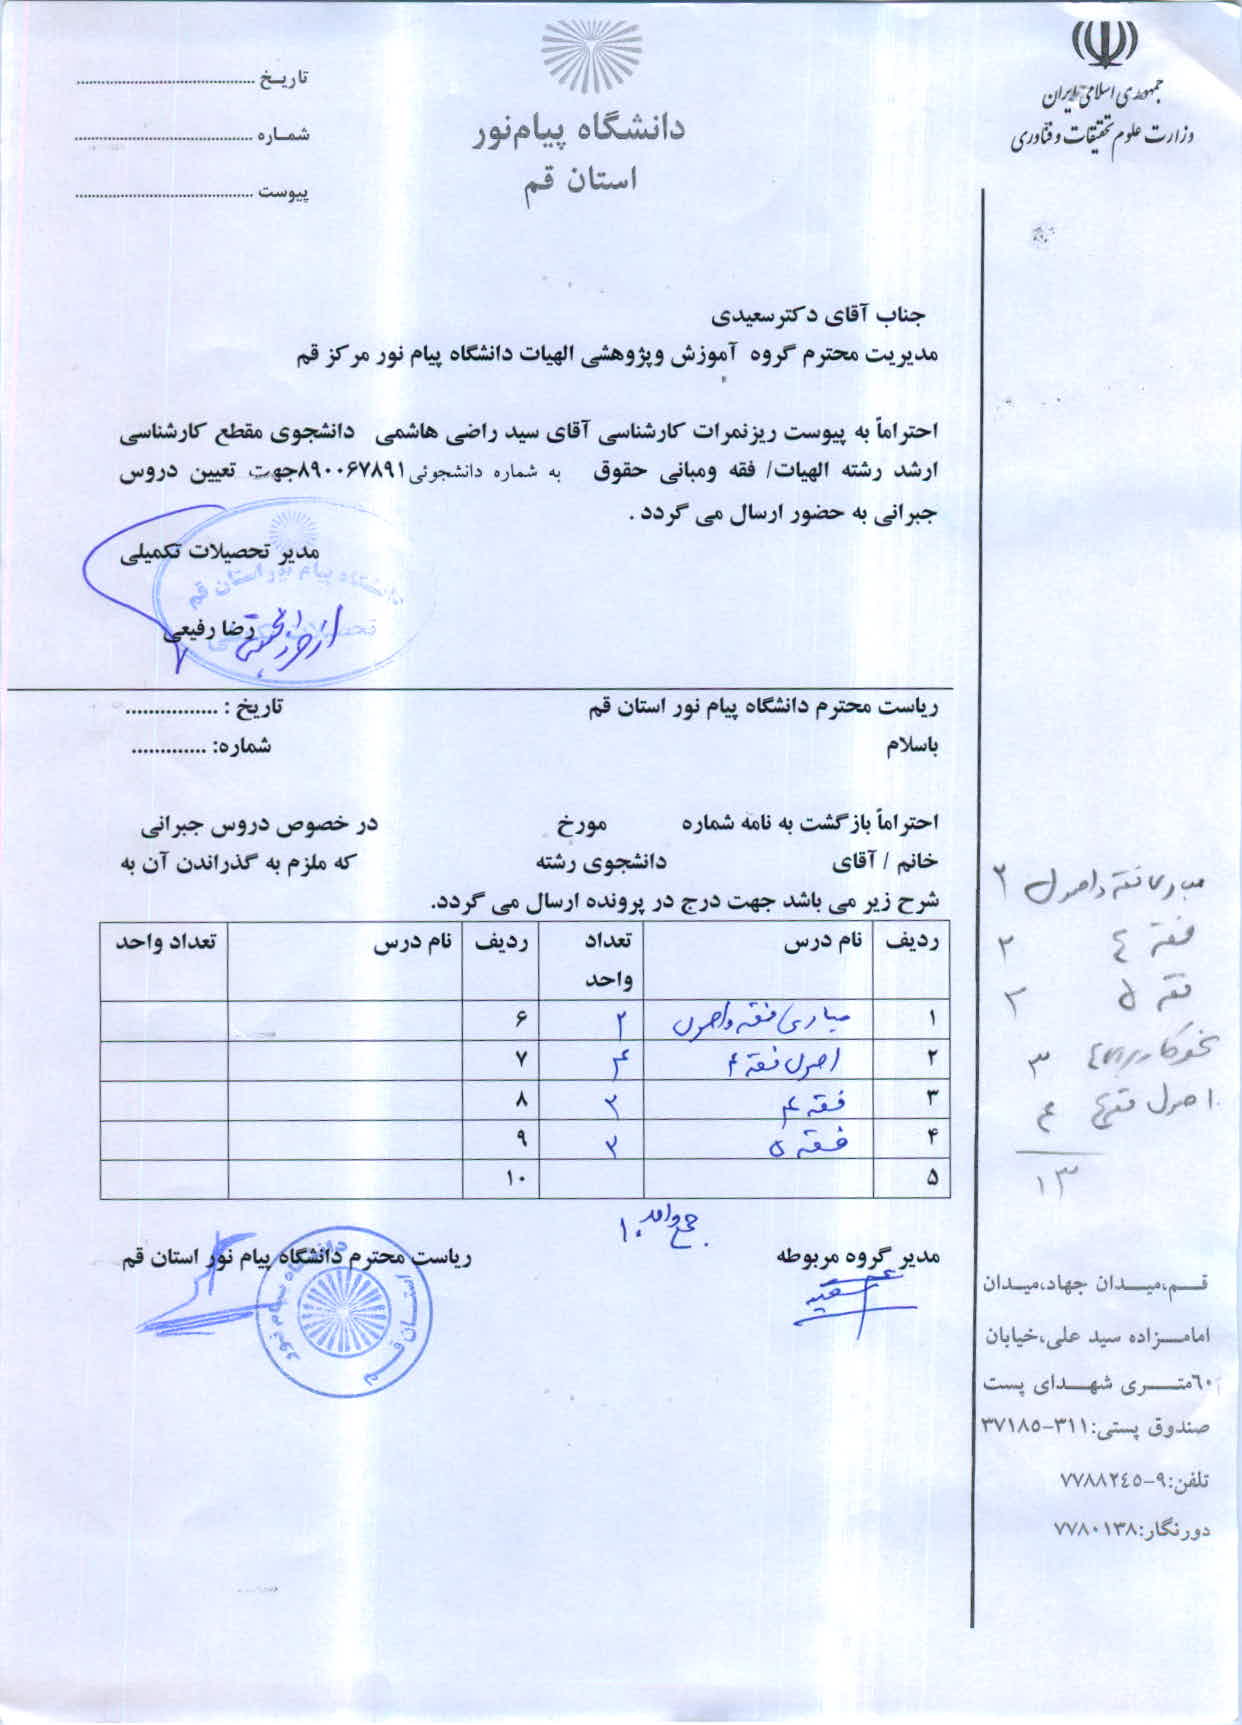 جمهوری اسلامی ایران
وزارت علوم تحقیقات و فناوری
دانشگاه پیام‌نور
استان قم
تاریـخ ............................................
شمـاره ............................................
پیوست ............................................
جناب آقای دکترسعیدی
مدیریت محترم گروه آموزش وپژوهشی الهیات دانشگاه پیام نور مرکز قم
احتراماً به پیوست ریزنمرات کارشناسی آقای سید راضی هاشمی دانشجوی مقطع کارشناسی
ارشد رشته الهیات/ فقه ومبانی حقوق به شماره دانشجوئی ۸۹۰۰۶۷۸۹۱جهت تعیین دروس
جبرانی به حضور ارسال می گردد .
مدیر تحصیلات تکمیلی
رضا رفیعی
دانشگاه پیام نور استان قم
تحصیلات تکمیلی
ریاست محترم دانشگاه پیام نور استان قم تاریخ : ................
باسلام شماره: .............
احتراماً بازگشت به نامه شماره مورخ در خصوص دروس جبرانی
خانم / آقای دانشجوی رشته که ملزم به گذراندن آن به
شرح زیر می باشد جهت درج در پرونده ارسال می گردد.
ردیف نام درس تعداد واحد ردیف نام درس تعداد واحد
۱ مبادی فقه و اصول ۲ ۶
۲ اصول فقه ۴ ۴ ۷
۳ فقه ۴ ۲ ۸
۴ فقه ۵ ۲ ۹
۵ ۱۰
جمع واحد ۱۰
مدیر گروه مربوطه ریاست محترم دانشگاه پیام نور استان قم
دانشگاه پیام نور
استان قم
مبادی فقه و اصول ۲
فقه ٤ ۲
فقه ۵ ۲
نحو کاربردی ٤ ۳
اصول فقه ٤ ۴
۱۳
قــم،میــدان جهاد،میـدان
امامــزاده سید علی،خیابان
٦٠متــری شهــدای پست
صندوق پستی:۳۱۱-۳۷۱۸٥
تلفن:۹-۷۷۸۸۲٤٥
دورنگار:۷۷۸۰۱۳۸